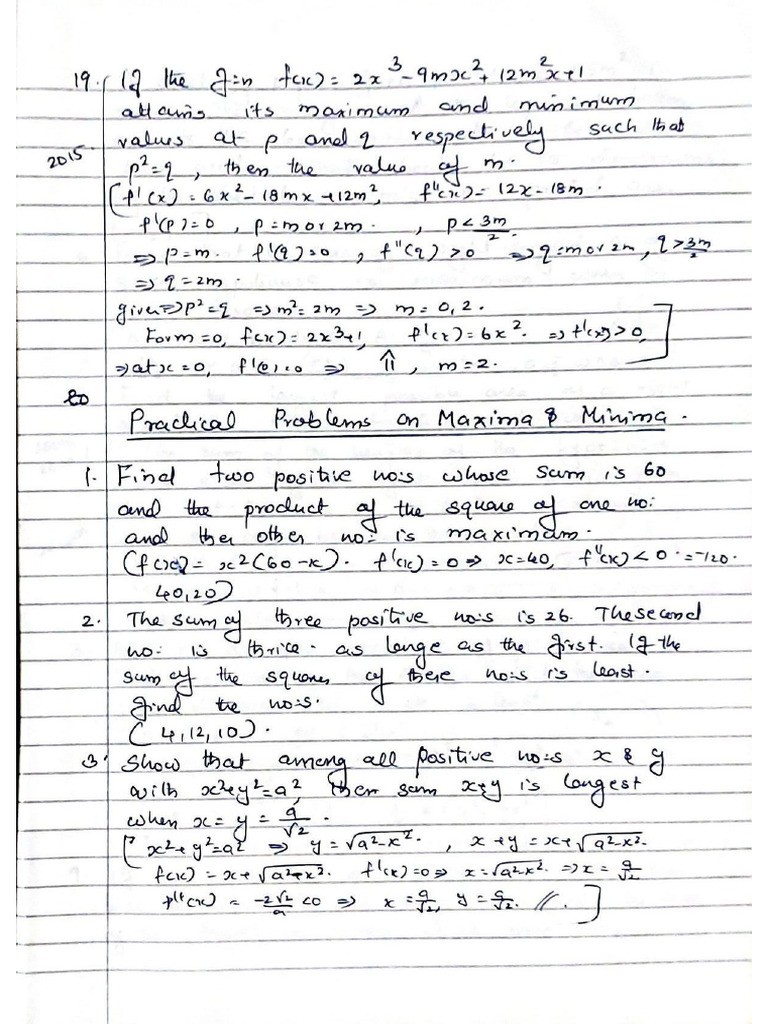 19. If the f:n f(x) = 2x³ - 9mx² + 12m²x+1
attains its maximum and minimum
values at p and q respectively such that
2015. p² = q, then the value of m.
[f'(x) = 6x² - 18mx + 12m², f''(x) = 12x - 18m.
f'(p) = 0, p = m or 2m. , p < 3m/2
⇒ p = m. f'(q) = 0, f''(q) > 0 ⇒ q = m or 2m, q > 3m/2
⇒ q = 2m.
given ⇒ p² = q ⇒ m² = 2m ⇒ m = 0, 2.
For m = 0, f(x) = 2x³+1, f'(x) = 6x². ⇒ f'(x) > 0,
⇒ at x = 0, f'(0) = 0 ⇒ ⇑, m = 2. ]
20
Practical Problems on Maxima & Minima.
1. Find two positive no:s whose sum is 60
and the product of the square of one no:
and ther other no: is maximum.
(f(x) = x²(60-x). f'(x) = 0 ⇒ x = 40, f''(x) < 0 = -120.
40, 20)
2. The sum of three positive no:s is 26. The second
no: is thrice as large as the first. If the
sum of the squares of these no:s is least.
find the no:s.
(4, 12, 10).
3. Show that among all positive no:s x & y
with x²+y²=a², then sum x+y is largest
when x = y = a/√2.
[x²+y²=a² ⇒ y = √a²-x². , x+y = x+√a²-x².
f(x) = x+√a²-x². f'(x) = 0 ⇒ x = √a²-x². ⇒ x = a/√2
f''(x) = -2√2/a < 0 ⇒ x = a/√2, y = a/√2. //. ]